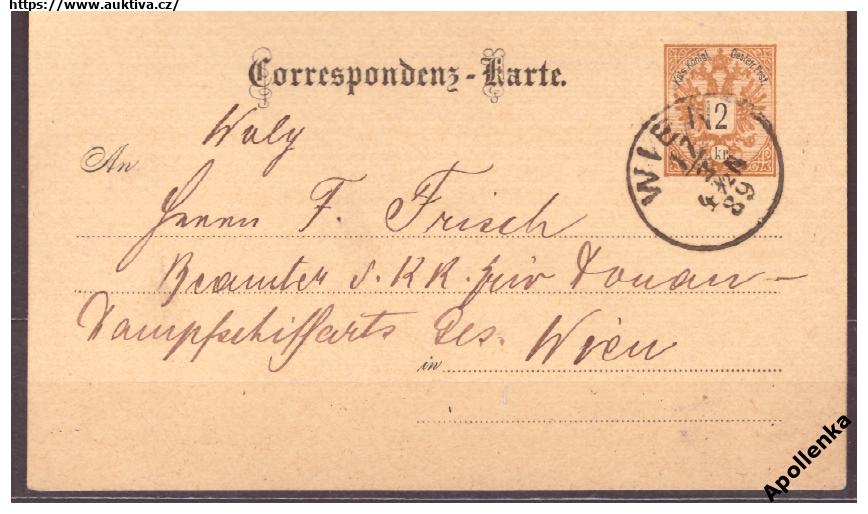 https://www.auktiva.cz/
Correspondenz-Karte.
Kais. Königl. Oesterr. Post.
2
kr.
WIEN
89
An
Herrn F. Frisch
Beamter d. KK. priv Donau-
Dampfschiffarts Ges. Wien
in
Apollenka